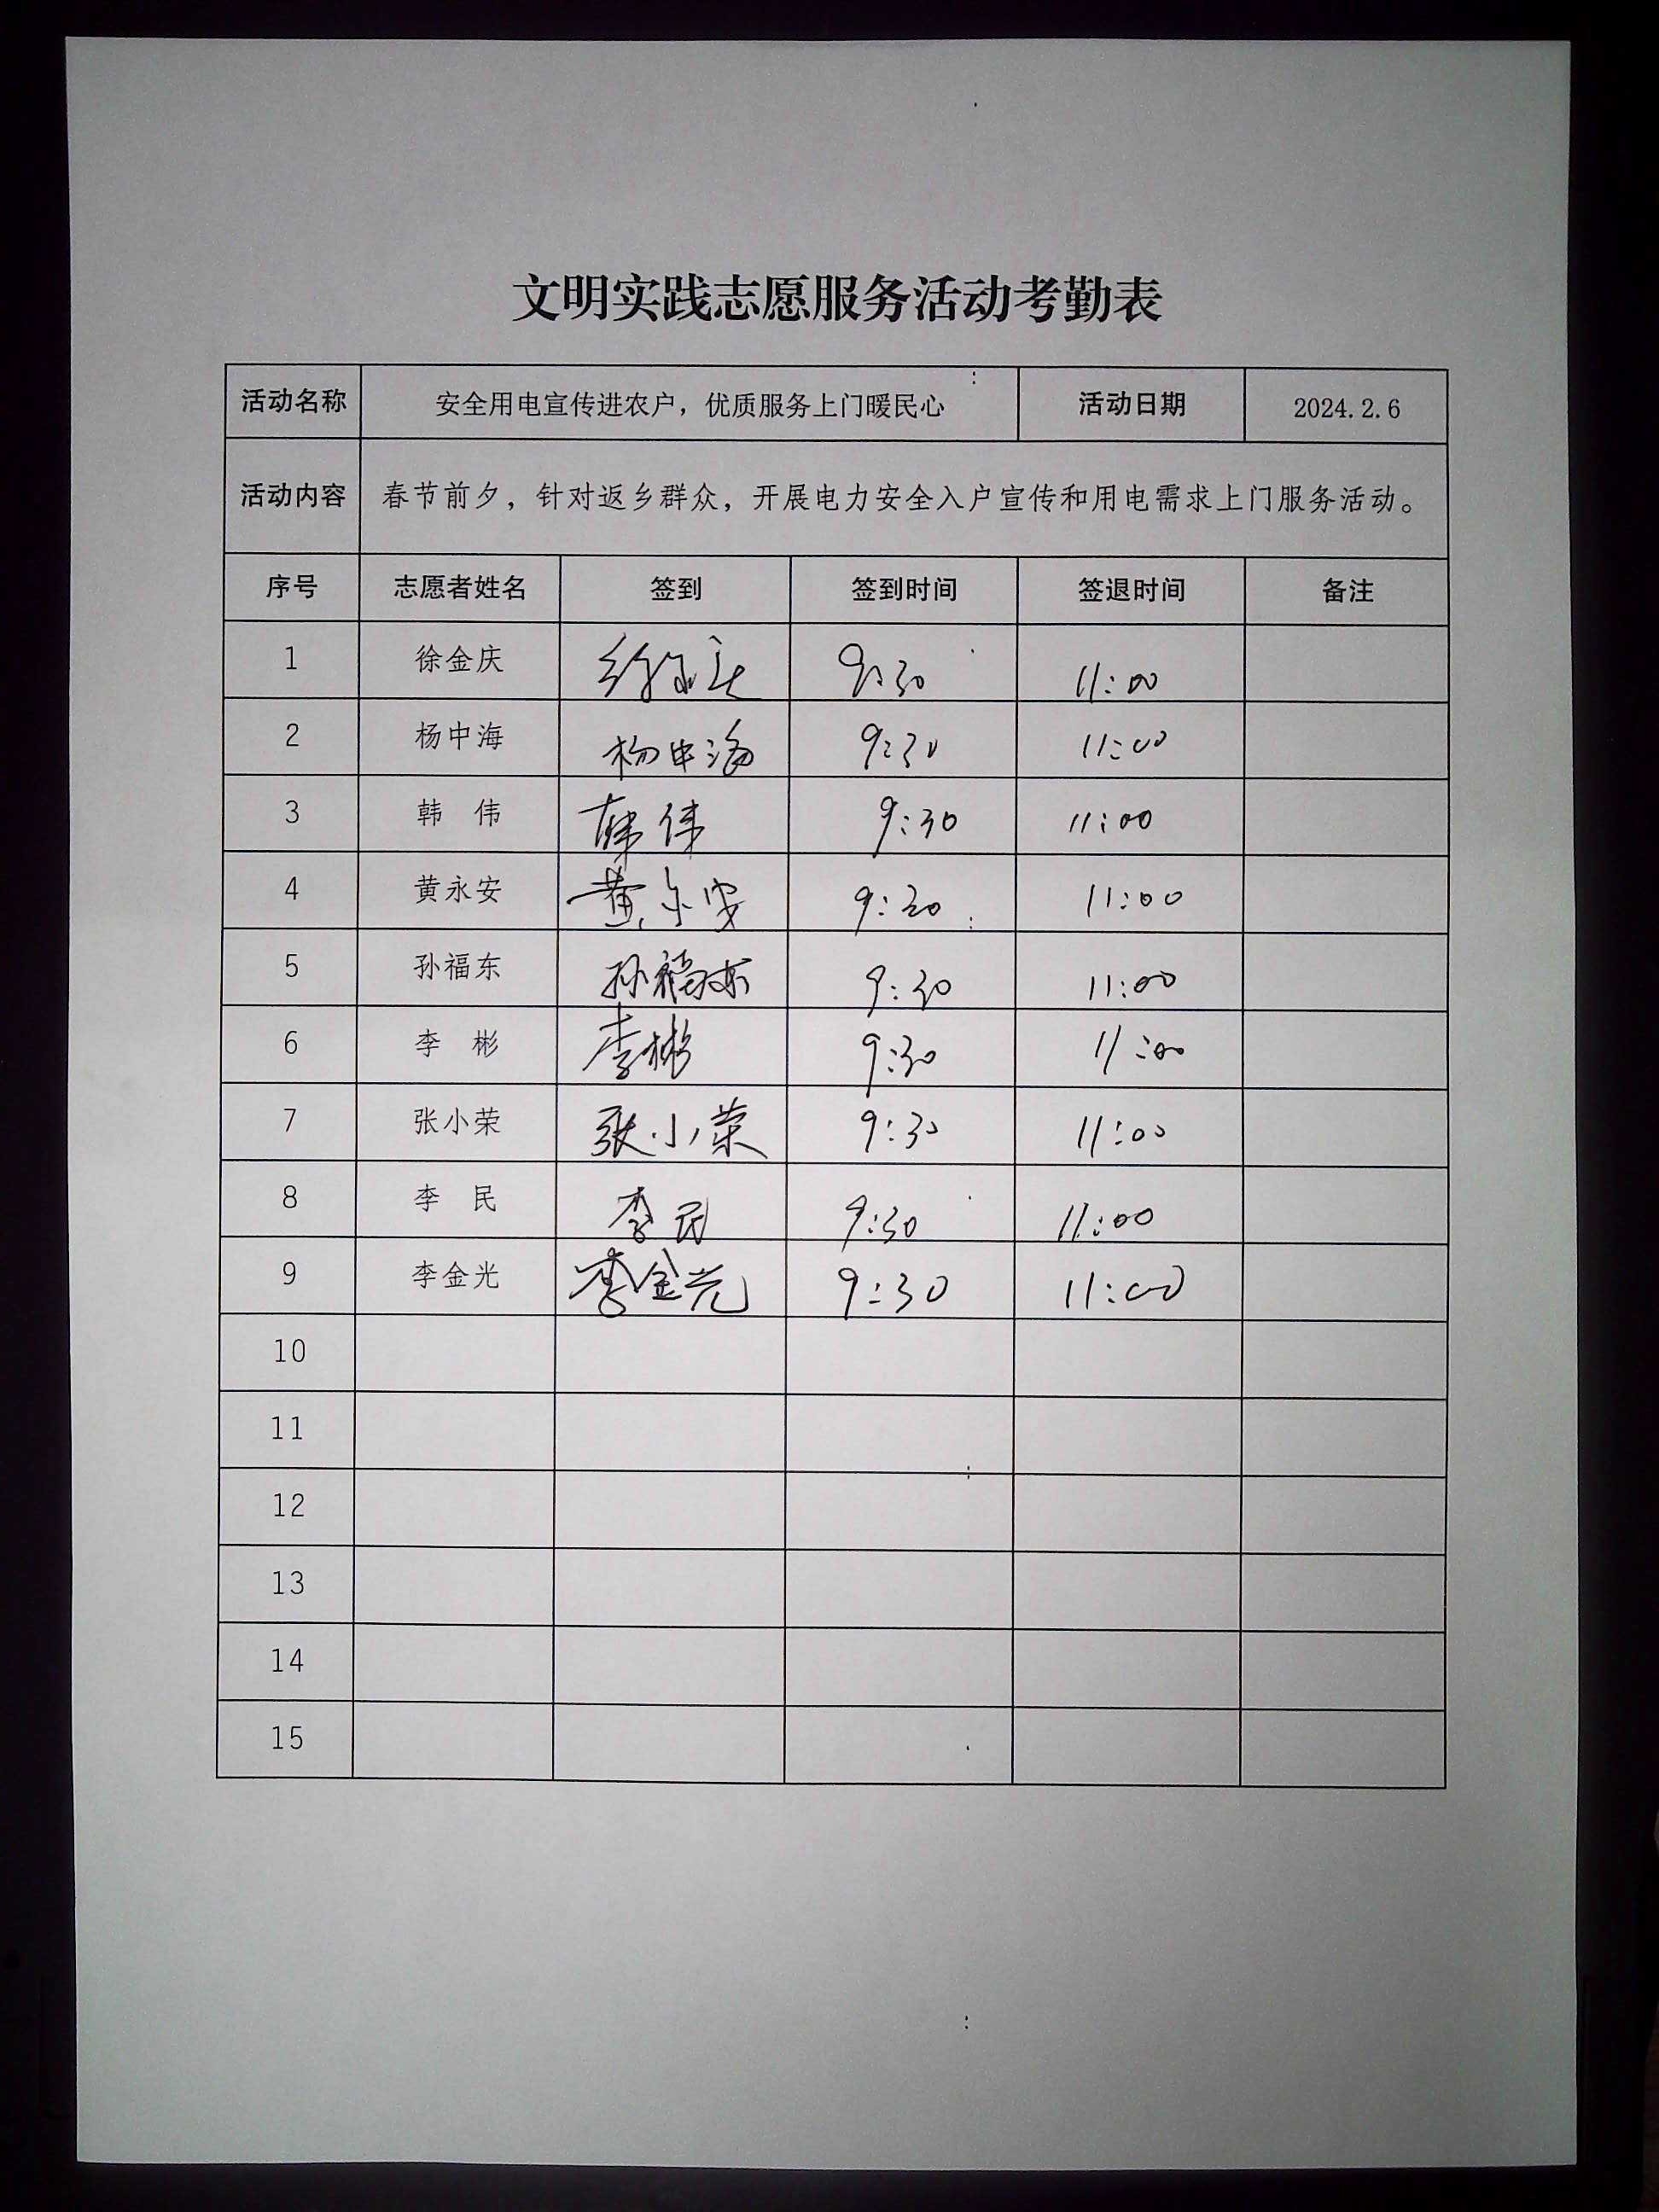 文明实践志愿服务活动考勤表
活动名称 安全用电宣传进农户，优质服务上门暖民心 活动日期 2024.2.6
活动内容 春节前夕，针对返乡群众，开展电力安全入户宣传和用电需求上门服务活动。
序号 志愿者姓名 签到 签到时间 签退时间 备注
1 徐金庆 徐金庆 9:30 11:00
2 杨中海 杨中海 9:30 11:00
3 韩 伟 韩伟 9:30 11:00
4 黄永安 黄永安 9:30 11:00
5 孙福东 孙福东 9:30 11:00
6 李 彬 李彬 9:30 11:00
7 张小荣 张小荣 9:30 11:00
8 李 民 李民 9:30 11:00
9 李金光 李金光 9:30 11:00
10
11
12
13
14
15